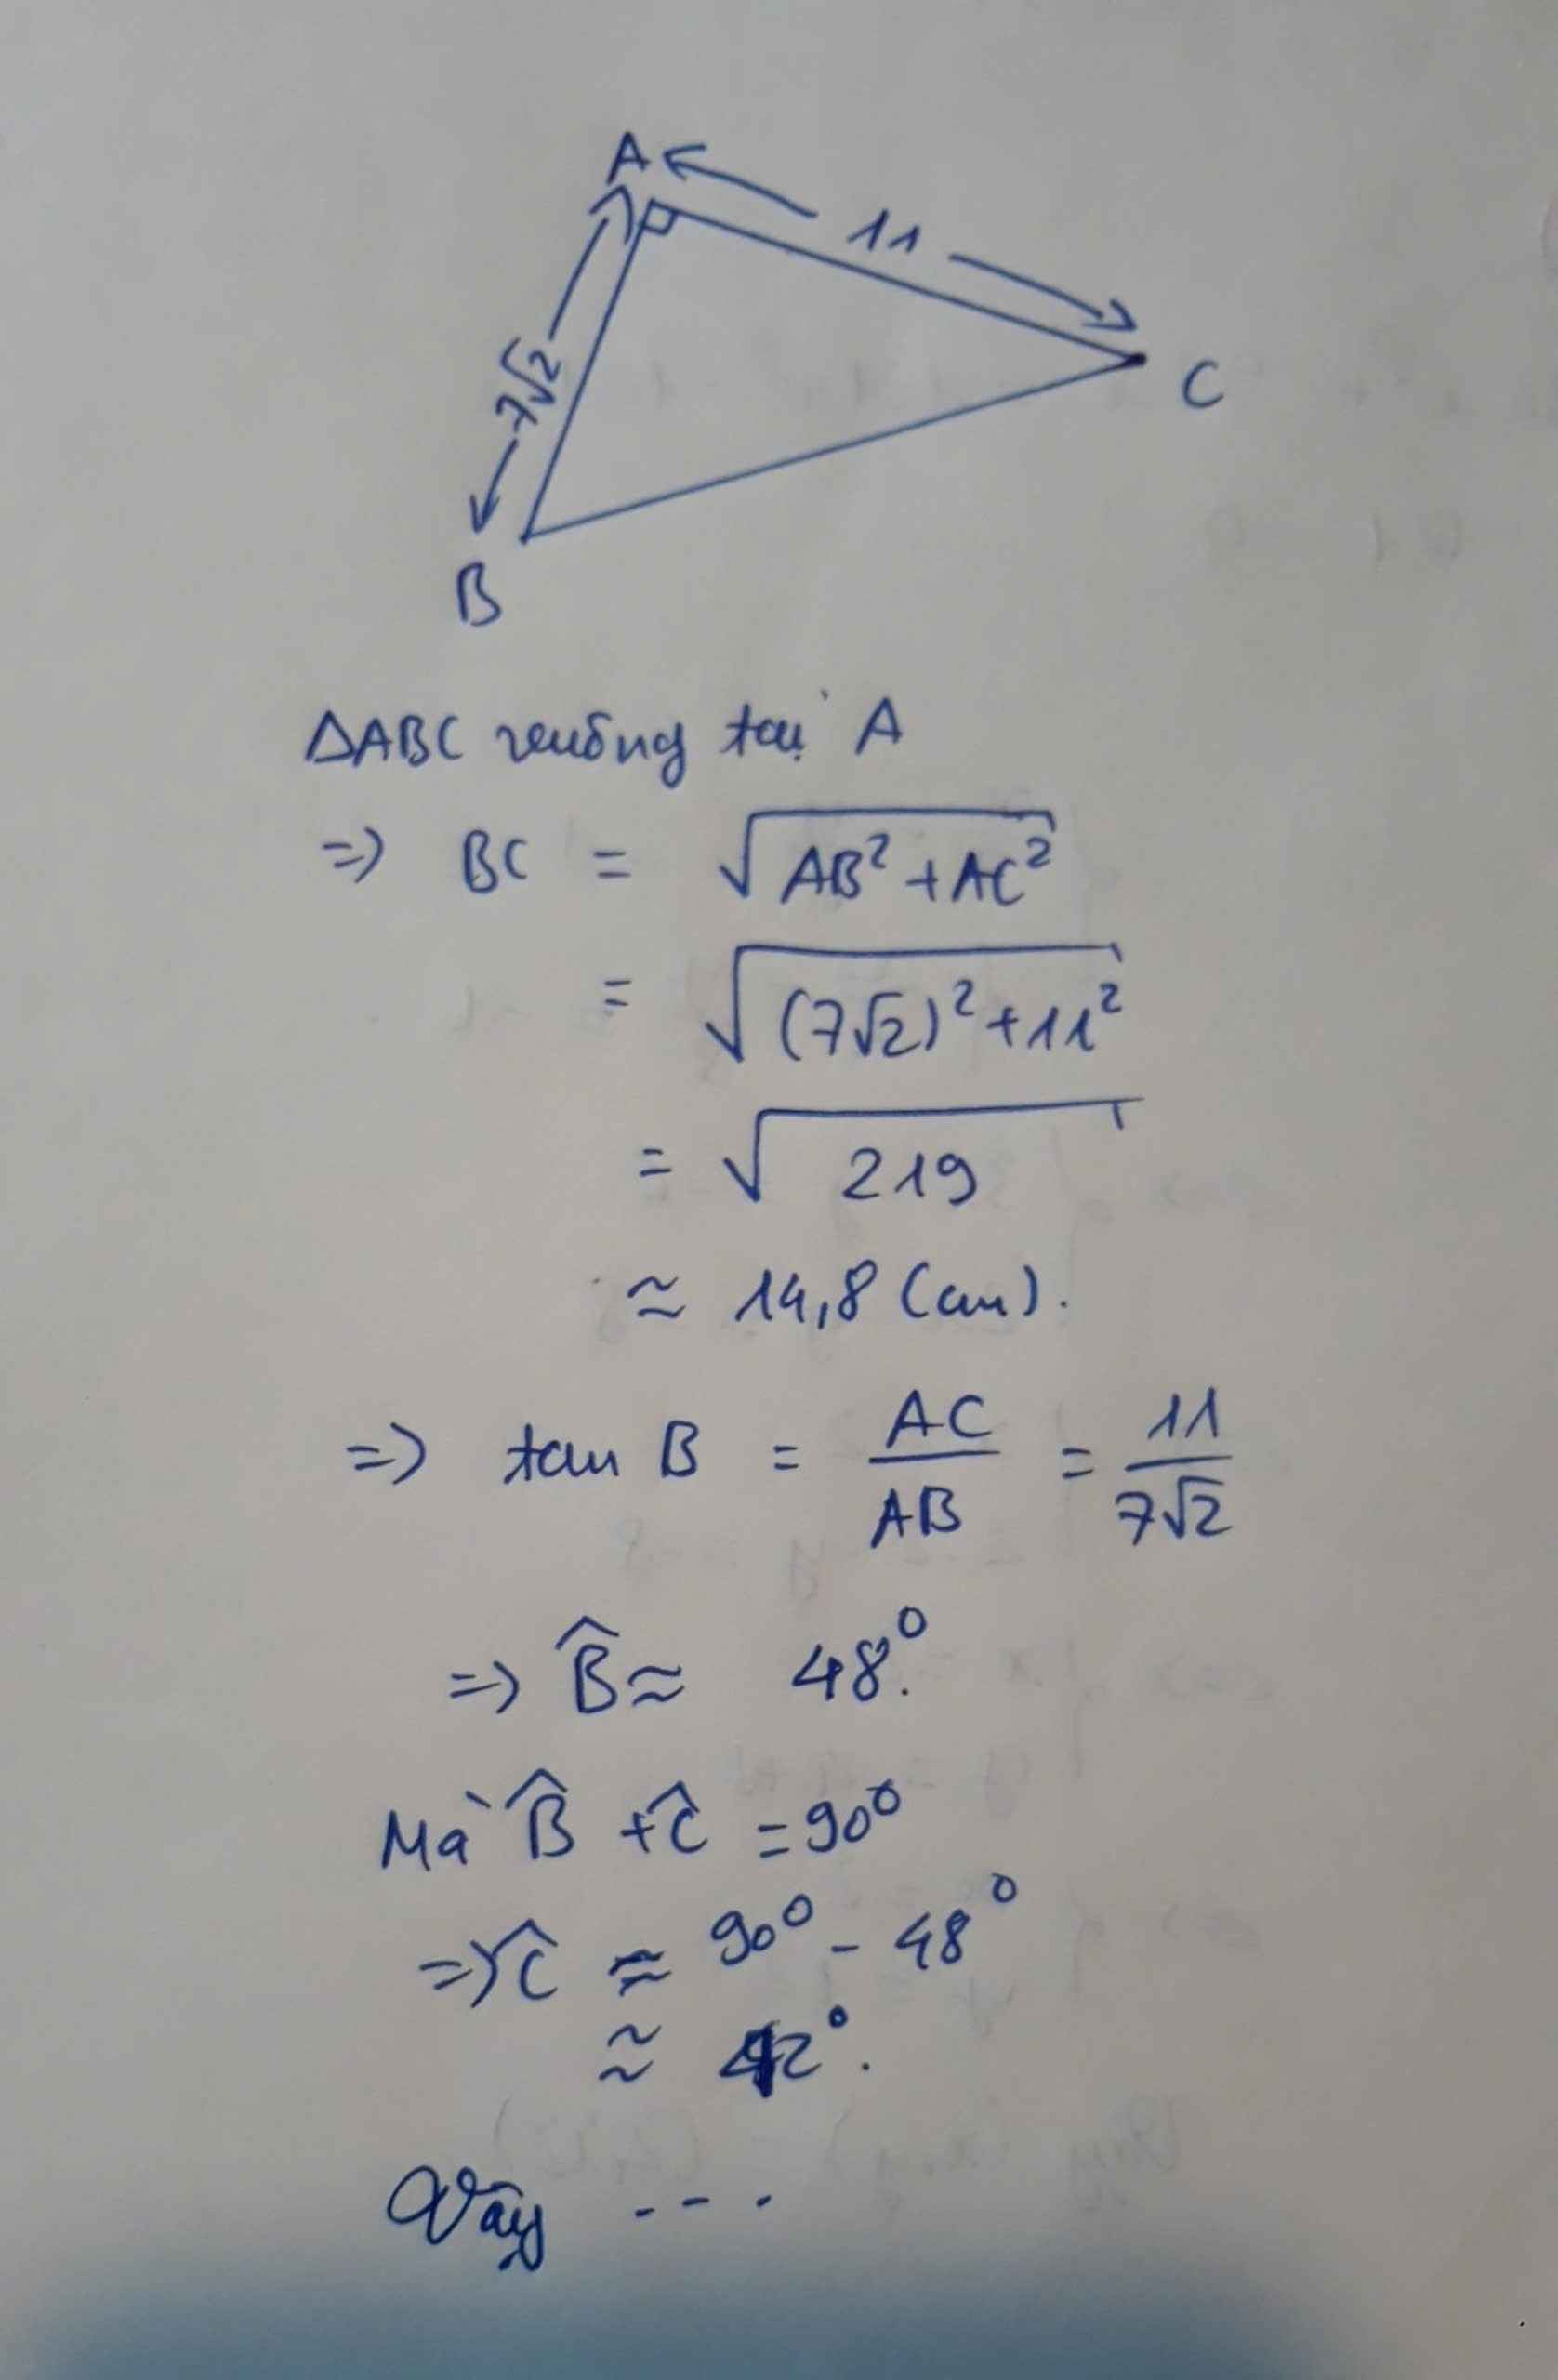 A
11
7√2
C
B
ΔABC vuông tại A
=> BC = √(AB² + AC²)
= √((7√2)² + 11²)
= √219
≈ 14,8 (cm).
=> tan B = AC/AB = 11/7√2
=> B̂ ≈ 48°.
Mà B̂ + Ĉ = 90°
=> Ĉ ≈ 90° - 48°
≈ 42°.
Vậy ....